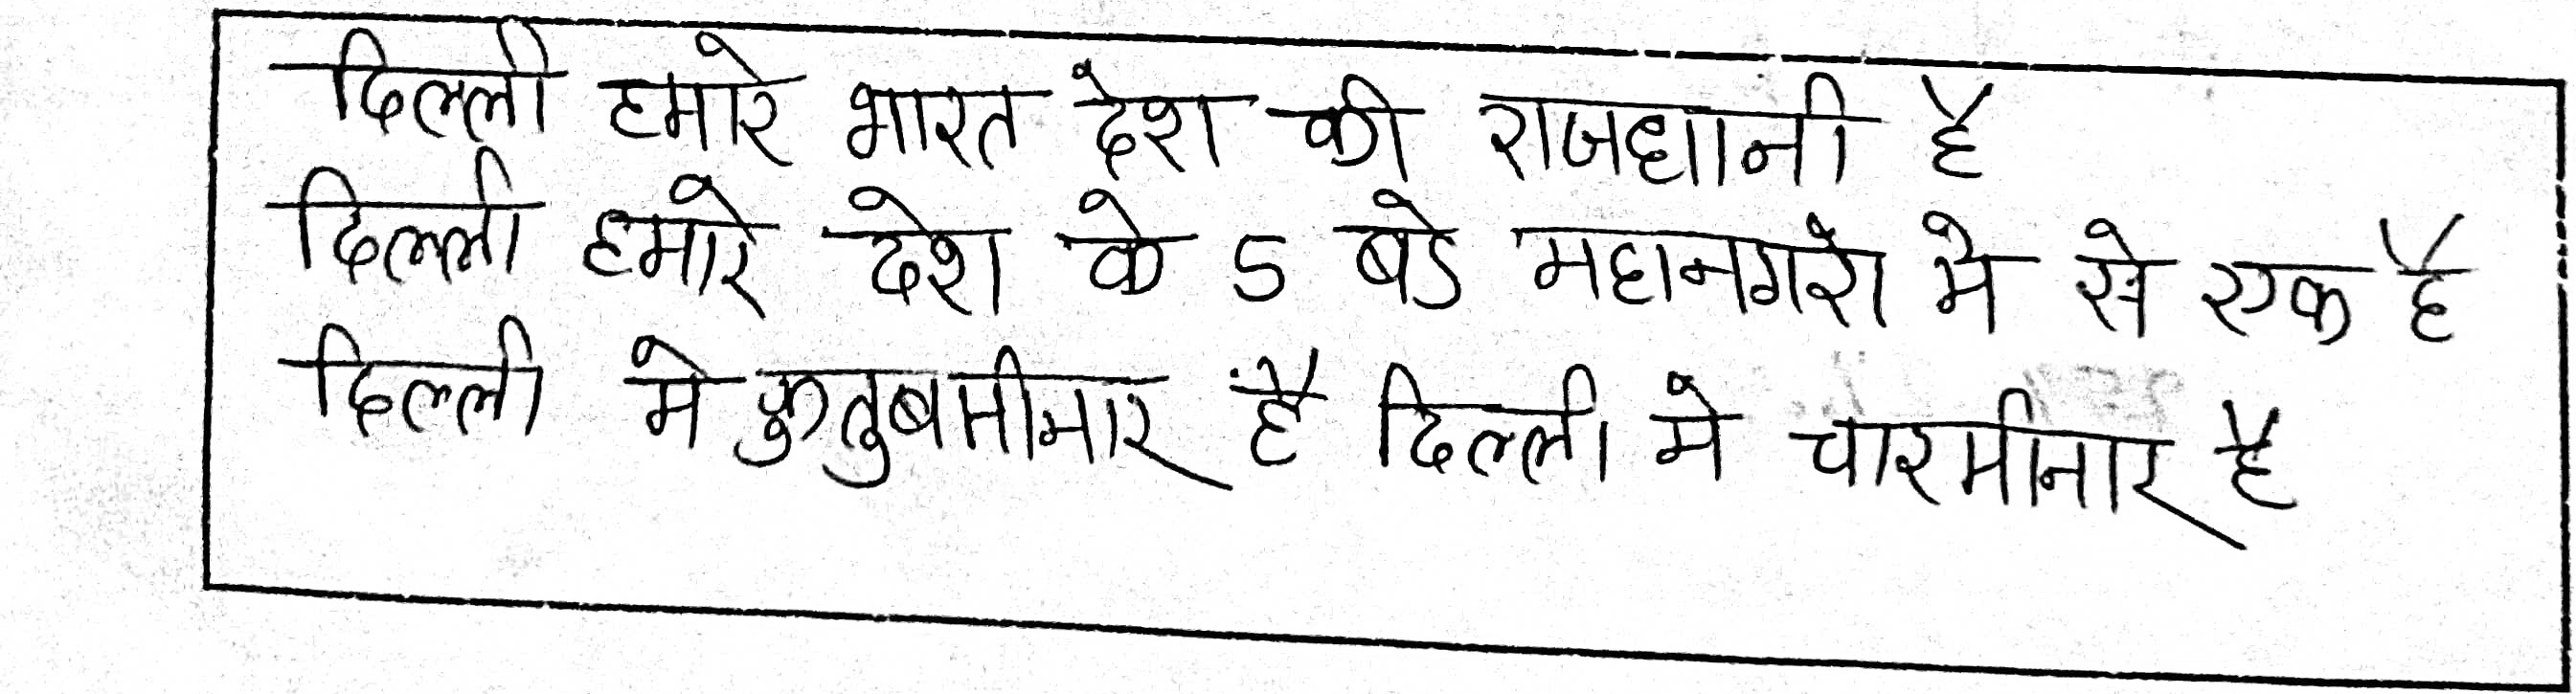 दिल्ली हमारे भारत देश की राजधानी है
दिल्ली हमारे देश के 5 बडे महानगरो मे से एक है
दिल्ली मे कुतुबमीनार है दिल्ली मे चारमीनार है